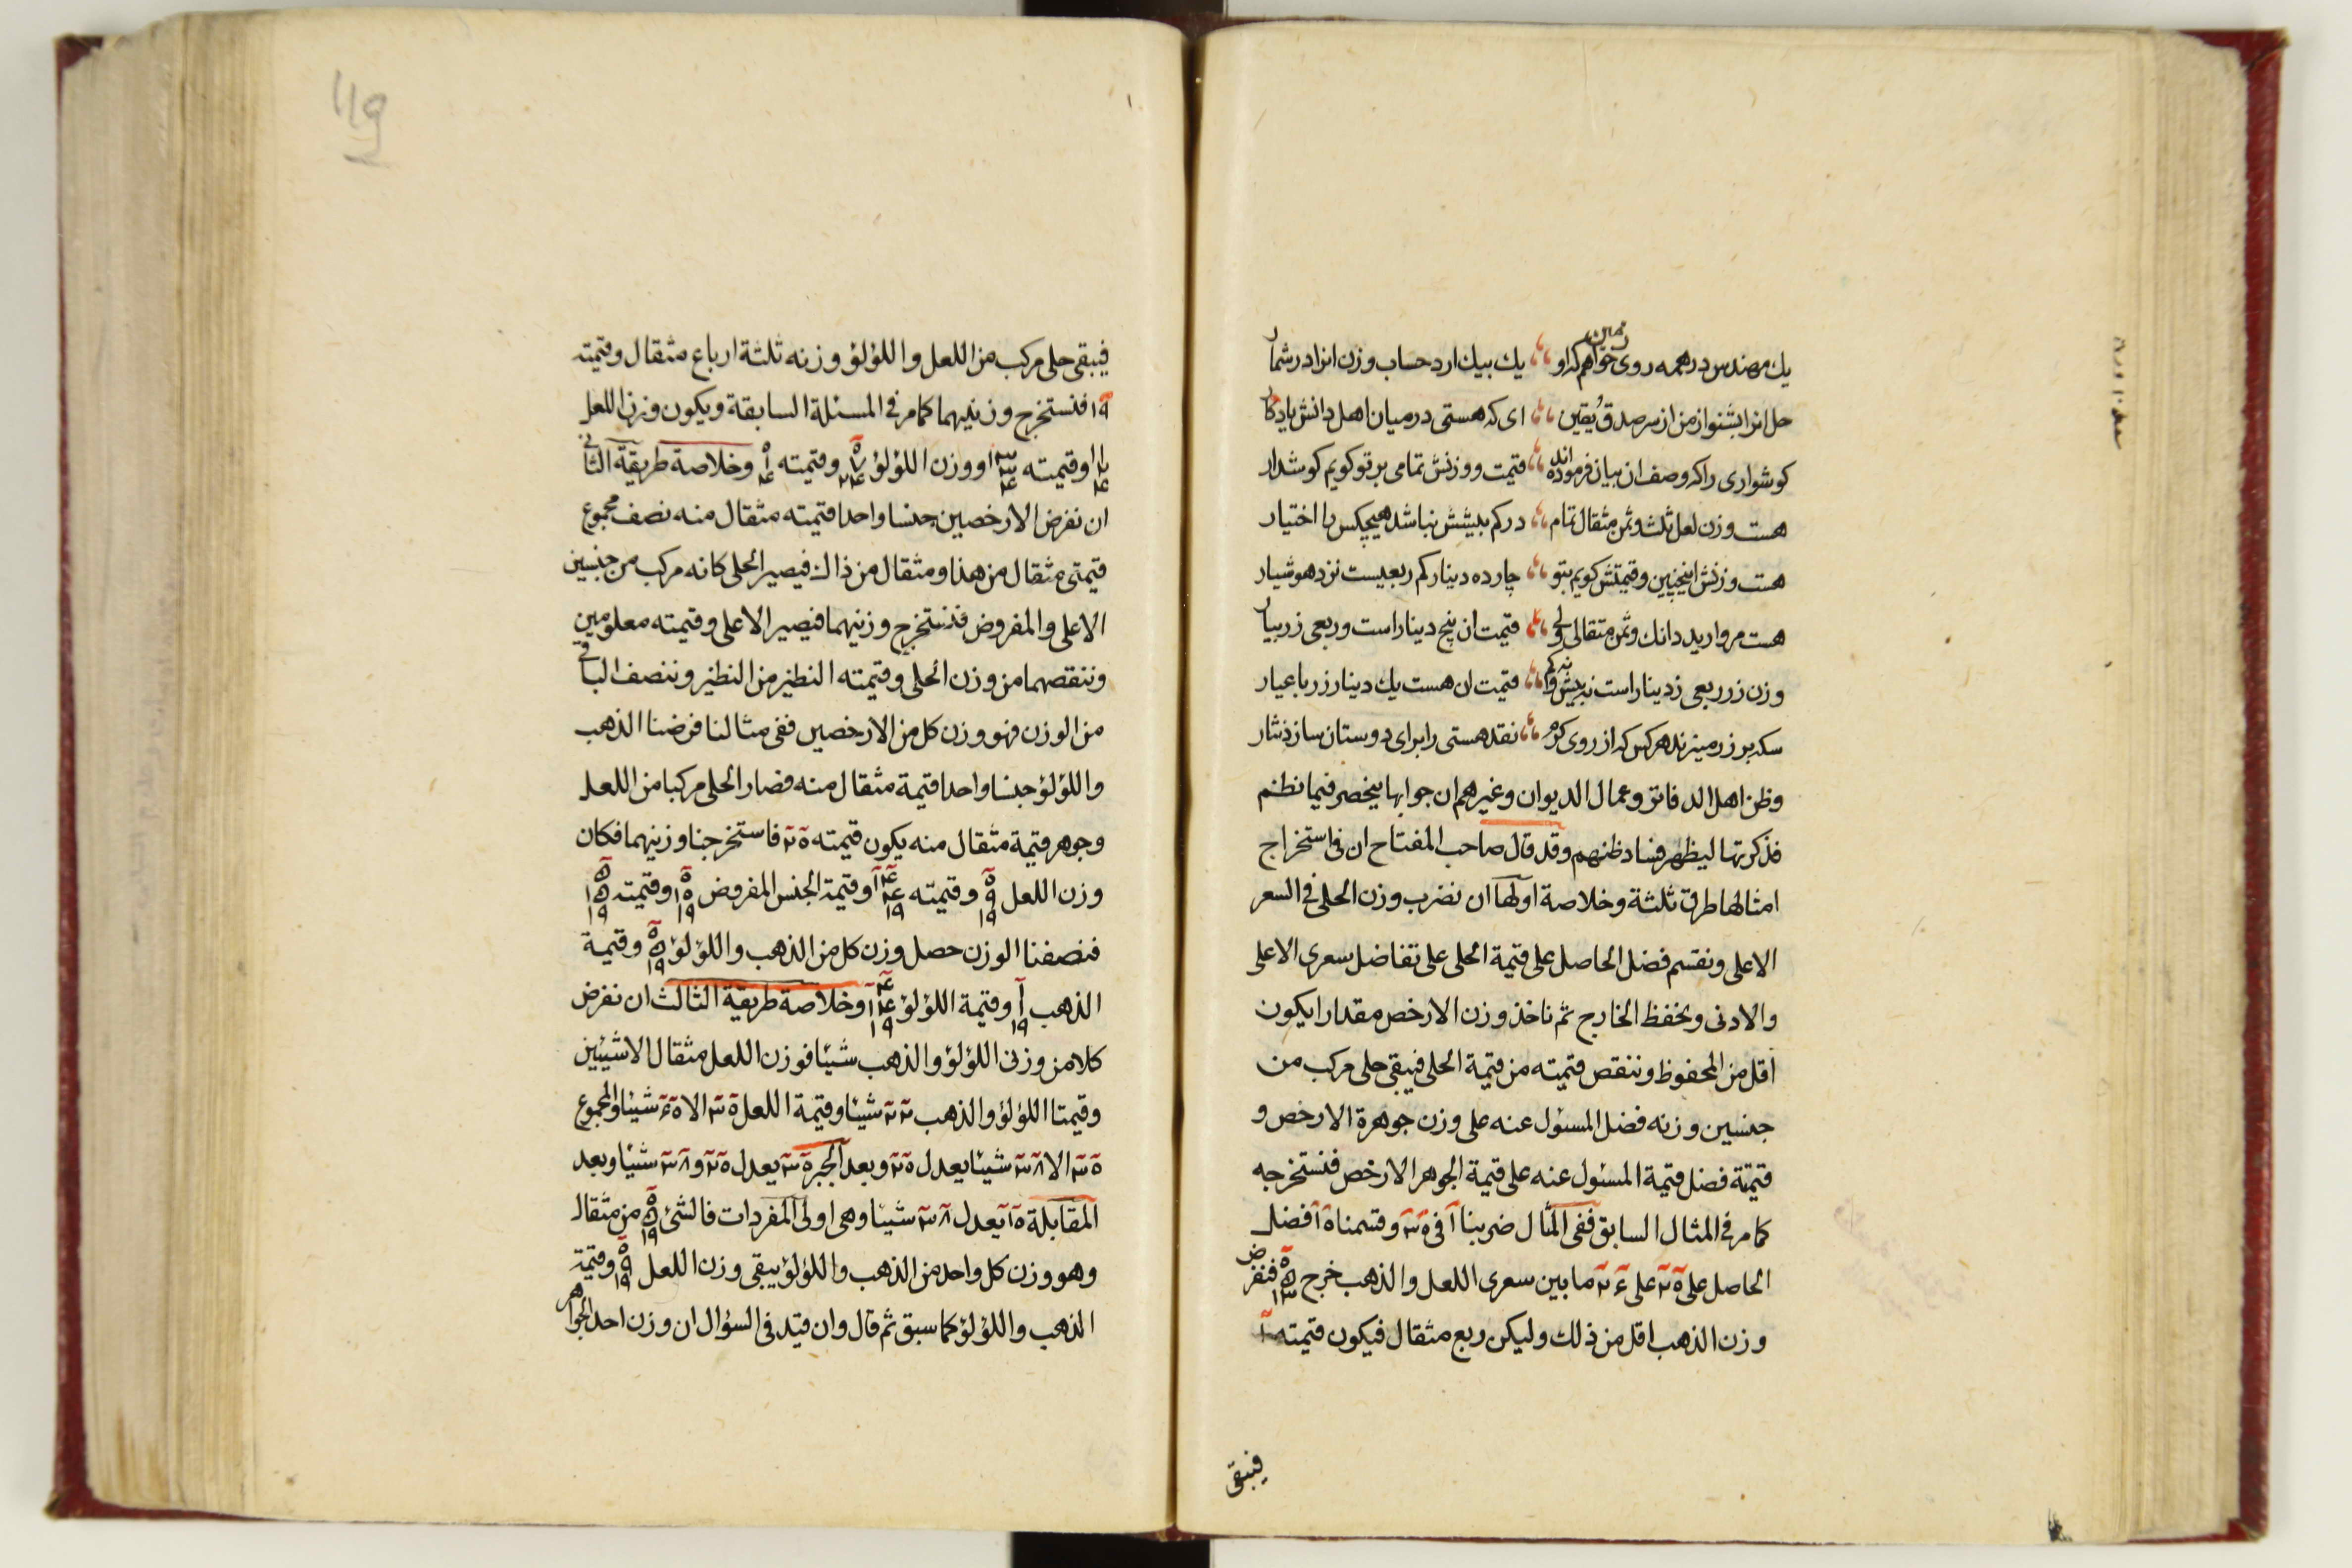 یك مهندس در همه روی زمین خواهم که او یك بیك ارد حساب وزن انرا در شمار
حل انرا بشنو از من از سر صدق و یقین ای که هستی در میان اهل دانش یادکار
کوشواری راکه وصف ان بیان فرموده اند قیمت و وزنش تمامی بر تو کویم کوشدار
هست وزن لعل ثلث وثمن مثقال تمام در کم بیشش نباشد هیچکس را اختیار
هست وزنش اینچنین وقیمتش کویم بتو چارده دینار کم ربعیست نزد هوشیار
هست مروارید دانك وثمن مثقالی قیمت ان پنج دینار است وربعی زر بیار
وزن زر ربعی ز دینار است نه بیش و نه کم قیمت ان هست یك دینار زر با عیار
سکه بر زر میزند هر کس که از روی کرم نقد هستی را برای دوستان سازد نثار
وظن اهل الدفاتر وعمال الديوان وغيرهم ان جوابها ينحصر فيما نظم
فذكرتها ليظهر فساد ظنهم وقد قال صاحب المفتاح ان فى استخراج
امثالها طرق ثلثة وخلاصة اولها ان نضرب وزن الحلى فى السعر
الاعلى ونقسم فضل الحاصل على قيمة الحلى على تفاضل سعرى الاعلى
والادنى ونحفظ الخارج ثم ناخذ وزن الارخص مقدارا يكون
اقل من المحفوظ وننقص قيمته من قيمة الحلى فيبقى حلى مركب من
جنسين وزنه فضل المسئول عنه على وزن جوهرة الارخص و
قيمته فضل قيمة المسئول عنه على قيمة الجوهر الارخص فنستخرجه
كما مر فى المثال السابق ففى المثال ضربنا ١ فى ٣٥ وقسمنا ١٥ فضل
الحاصل على ٢٥ على ٢٤ ما بين سعرى اللعل والذهب خرج فنفرض
وزن الذهب اقل من ذلك وليكن ربع مثقال فيكون قيمته ١
فيبقى
119
فيبقى حلى مركب من اللعل واللؤلؤ وزنه ثلثة ارباع مثقال وقيمته
١٩ فنستخرج وزنيهما كما مر فى المسئلة السابقة ويكون وزن اللعل
وقيمته ووزن اللؤلؤ وقيمته وخلاصة طريقة الثانى
ان نفرض الارخصين جنسا واحدا قيمته مثقال منه نصف مجموع
قيمتى مثقال من هذا ومثقال من ذاك فيصير الحلى كانه مركب من جنسين
الاعلى والمفروض فنستخرج وزنيهما فيصير الاعلى وقيمته معلومين
وننقصهما من وزن الحلى وقيمته النظير من النظير وننصف الباقى
من الوزن فهو وزن كل من الارخصين ففى مثالنا فرضنا الذهب
واللؤلؤ جنسا واحدا قيمة مثقال منه فصار الحلى مركبا من اللعل
وجوهر قيمة مثقال منه يكون قيمته فاستخرجنا وزنيهما فكان
وزن اللعل وقيمته وقيمة الجنس المفروض وقيمته
فنصفنا الوزن حصل وزن كل من الذهب واللؤلؤ وقيمة
الذهب وقيمة اللؤلؤ وخلاصة طريقة الثالث ان نفرض
كلا من وزنى اللؤلؤ والذهب شيئا فوزن اللعل مثقال الا شيئين
وقيمتا اللؤلؤ والذهب ٢٢ شيئا وقيمة اللعل شيئا والمجموع
٣٥ الا ٣٨ شيئا يعدل ٢٥ وبعد الجبر ٣٥ يعدل ٢٥ و ٣٨ شيئا وبعد
المقابلة ١٥ يعدل ٣٨ شيئا وهى اولى المفردات فالشئ من مثقال
وهو وزن كل واحد من الذهب واللؤلؤ يبقى وزن اللعل وقيمة
الذهب واللؤلؤ كما سبق ثم قال وان قيد فى السؤال ان وزن احد الجواهر